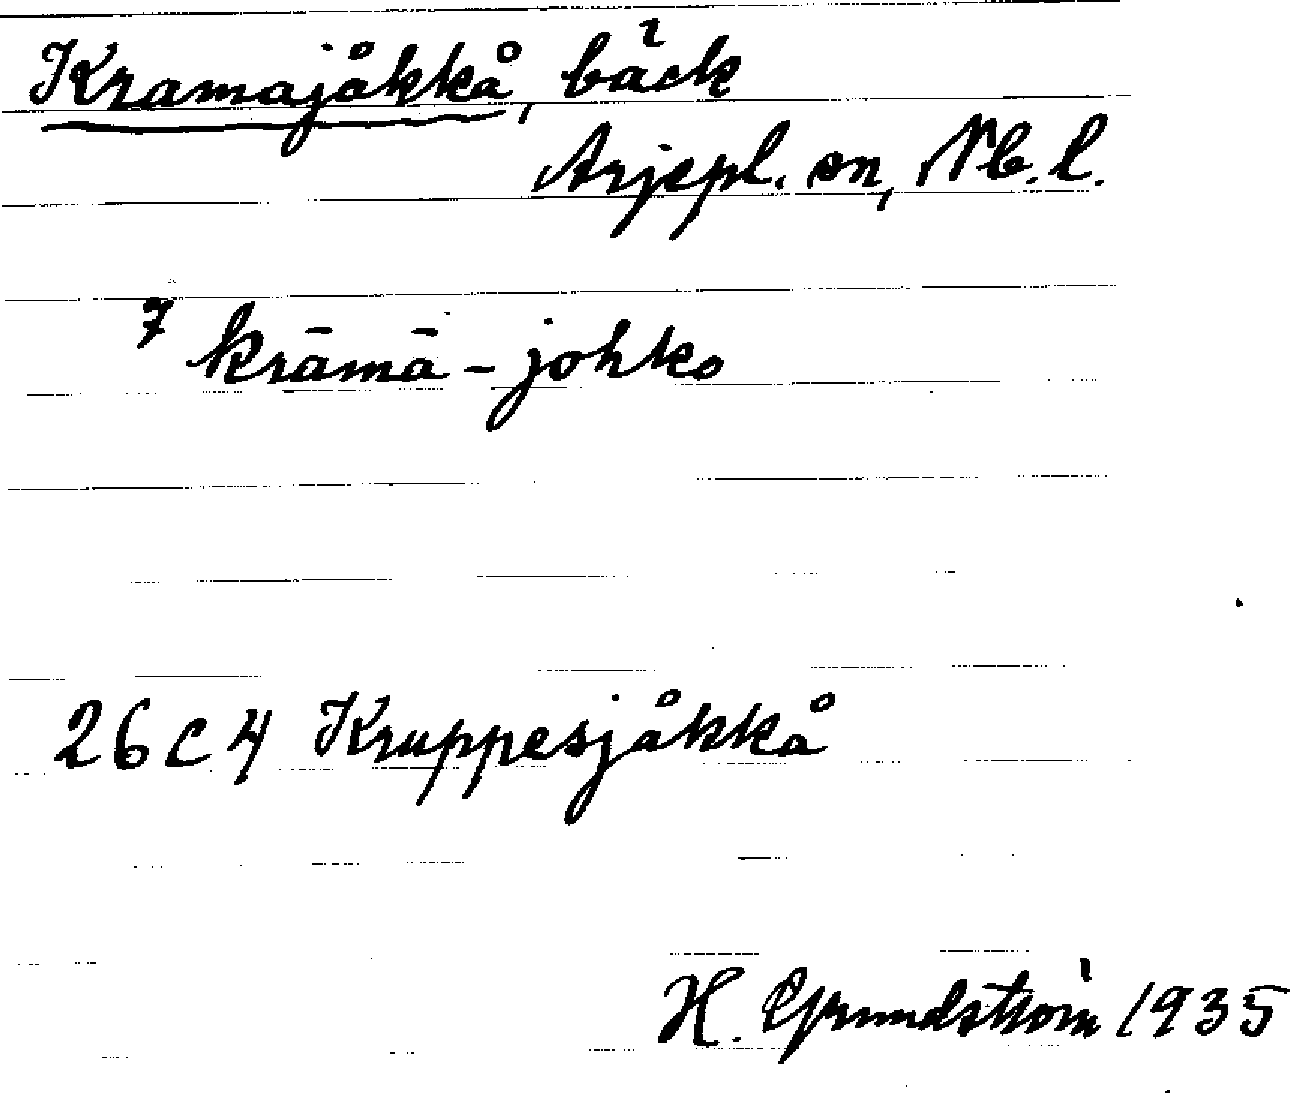 Kramajåkkå, bäck
Arjepl. sn, Nb. l.
7 krāmā-johko
26 C 4 Kruppesjåkkå
H. Grundström 1935